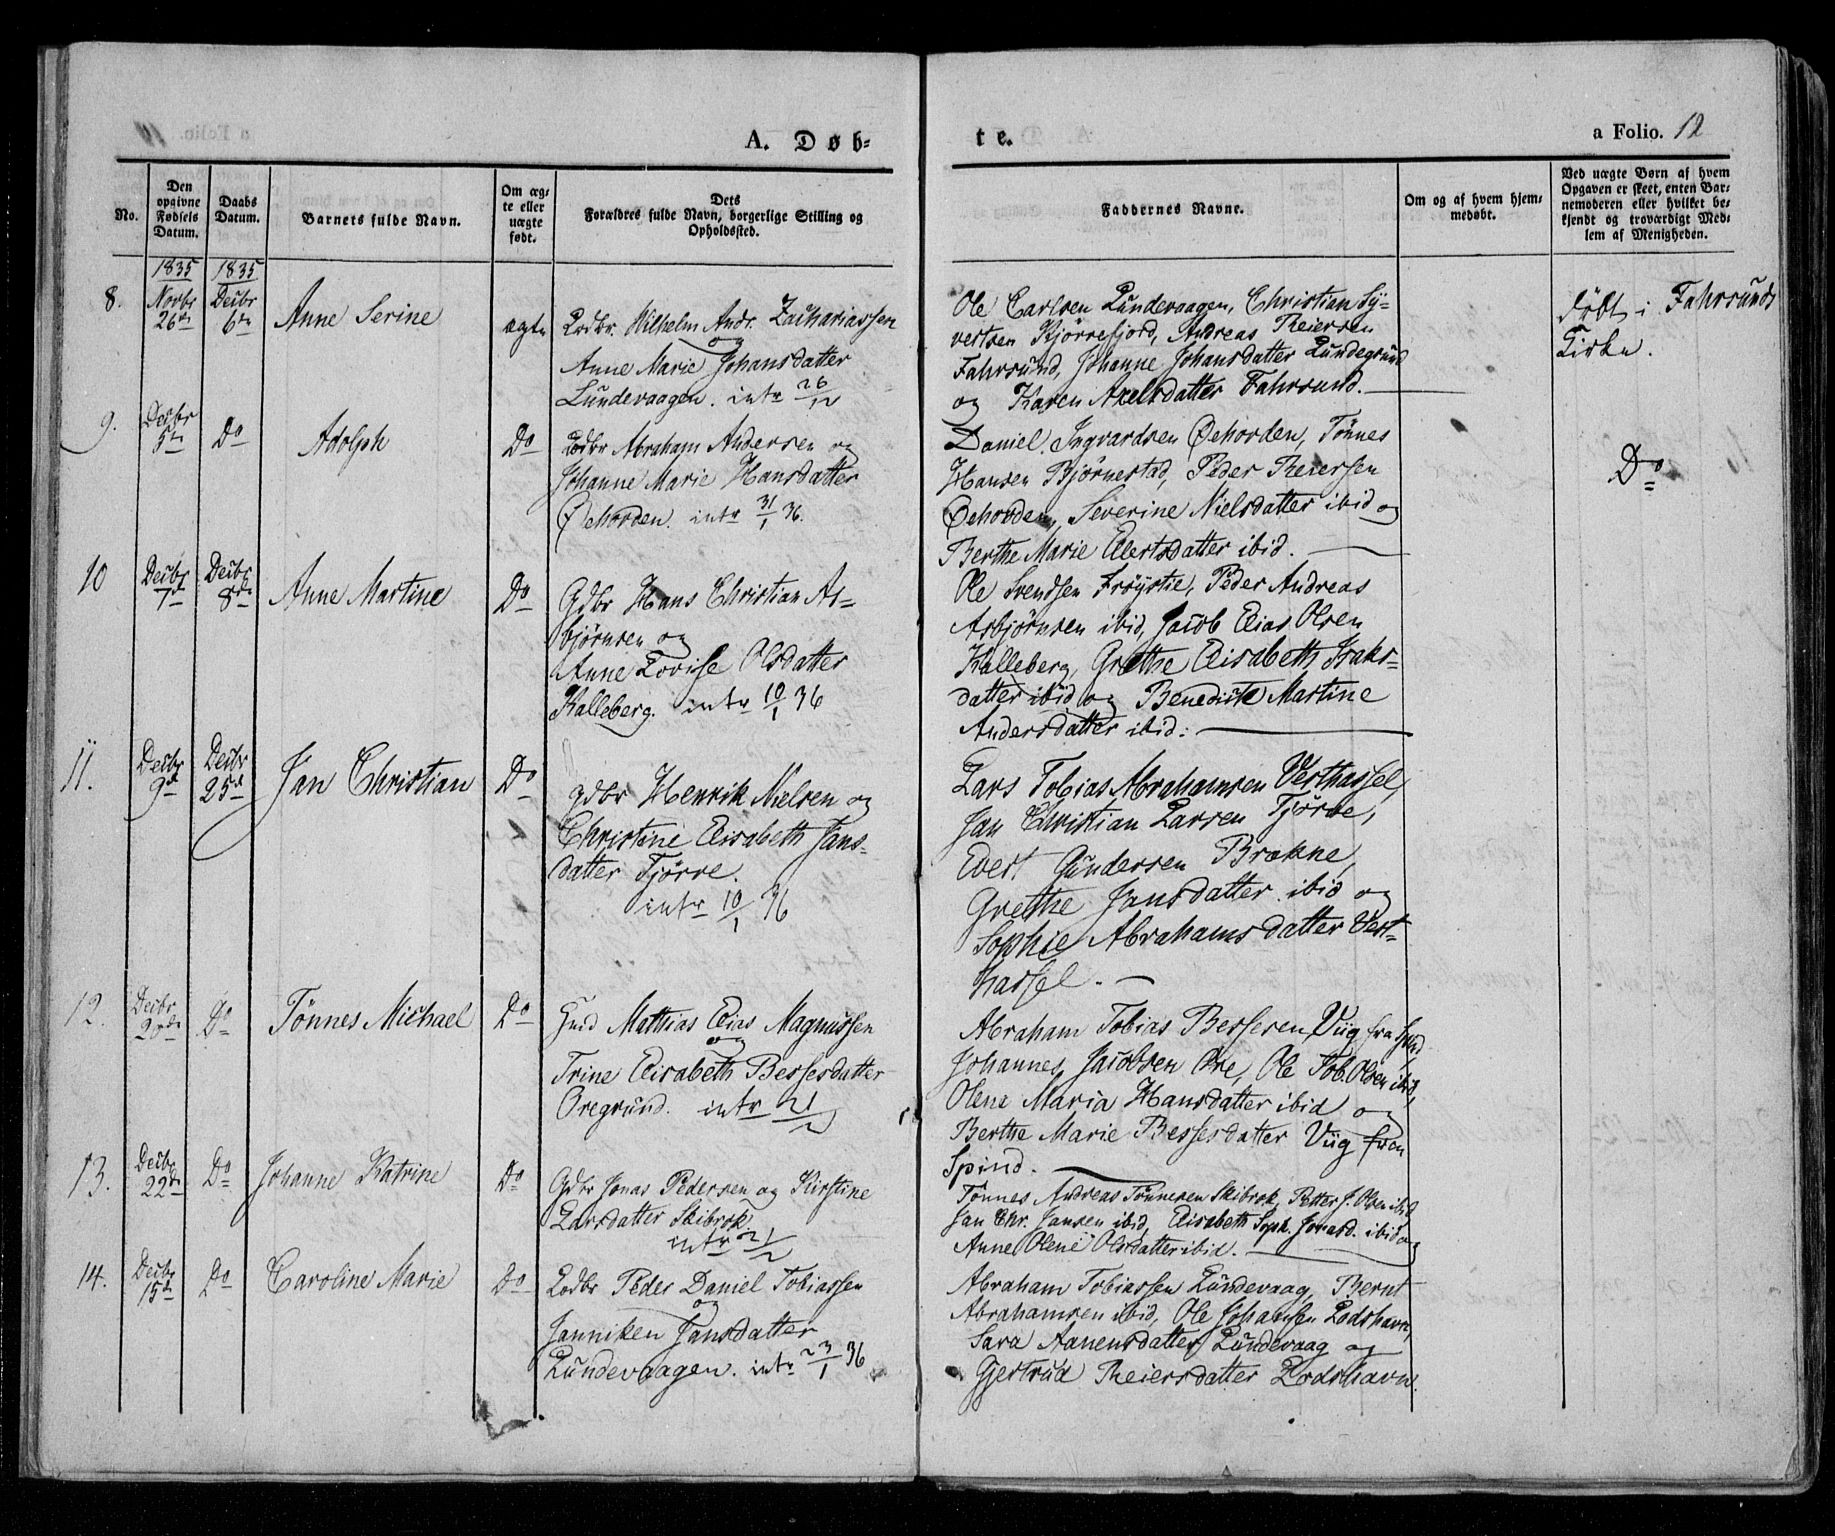 A. Døb-
te.
a Folio. 12
No.
Den opgivne Fødsels Datum.
Daabs Datum.
Barnets fulde Navn.
Om ægte eller uægte født.
Dets Forældres fulde Navn, borgerlige Stilling og Opholdssted.
Faddernes Navne.
Om og af hvem hjemmedøbt.
Ved uægte Børn af hvem Opgaven er skeet, enten Barnemoderen eller hvilket bekjendt og troværdigt Medlem af Menigheden.
1835
1835
8.
Novbr 26de
Decbr 6te
Anne Serine
ægte
Lodbr. Wilhelm Andr. Zachariassen
og
Anne Marie Johansdatter
Lundevaagen. intr 26/12
Ole Carlsen Lundevaagen, Christian Sy-
vertsen Kjørrefjord, Andreas Reiersen
Fahrsund, Johanne Johansdatter Lundegrund
og Karen Axelsdatter Fahrsund.
døbt i Fahrsunds
Kirke.
9.
Decbr 5te
Do
Adolph
Do
Lodbr Abraham Andersen og
Johanne Marie Hansdatter
Øehovden. intr 31/1 36.
Daniel Ingvardsen Øehovden, Tønnes
Hansen Bjørnestad, Peder Reiersen
Øehovden, Severine Nielsdatter ibid og
Berthe Marie Elertsdatter ibid.
Do
10
Decbr 7de
Decbr 8de
Anne Martine
Do
Gdbr Hans Christian As-
bjørnsen og
Anne Lovise Olsdatter
Kalleberg. intr 10/1 36
Ole Svendsen Frøystie, Peder Andreas
Asbjørnsen ibid, Jacob Elias Olsen
Kalleberg, Grethe Elisabeth Isaks-
datter ibid og Benedicte Martine
Andersdatter ibid.
11.
Decbr 9de
Decbr 25de
Jan Christian
Do
gdbr Henrik Nielsen og
Christine Elisabeth Jans-
datter Tjørve.
intr 10/1 36
Lars Tobias Abrahamsen Vesthassel,
Jan Christian Larsen Tjørve,
Evert Gundersen Brækne,
Grethe Jansdatter ibid og
Sophie Abrahamsdatter Vest-
hassel.
12.
Decbr 20de
Do
Tønnes Michael
Do
Huusmd Mathias Elias Magnussen
og
Trine Elisabeth Bessesdatter
Oregrund. intr 21/2
Abraham Tobias Bessesen Viig fra Spind
Johannes Jacobsen Ore, Ole Tob. Olsen ibid,
Olene Maria Hansdatter ibid og
Berthe Marie Bessesdatter Viig fra
Spind.
13.
Decbr 22de
Do
Johanne Katrine
Do
Gdbr Jonas Pedersen og Kirstine
Larsdatter Skibrok.
intr 21/2
Tønnes Andreas Tønnesen Skibrok, Petter J. Olsen ibid
Jan Chr. Jansen ibid, Elisabeth Soph. Jonasd. ibid og
Anne Olene Olsdatter ibid.
14.
Decbr 15de
Do
Caroline Marie
Do
Lodbr Peder Daniel Tobiassen
og
Janniken Jansdatter
Lundevaagen. intr 23/1 36
Abraham Tobiassen Lundevaag, Bernt
Abrahamsen ibid, Ole Johansen Lodshavn,
Sara Aanensdatter Lundevaag og
Gjertrud Reiersdatter Lodshavn.